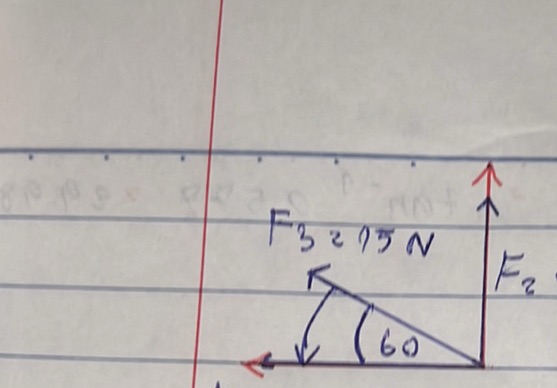 F₃ = 15 N
F₂
60